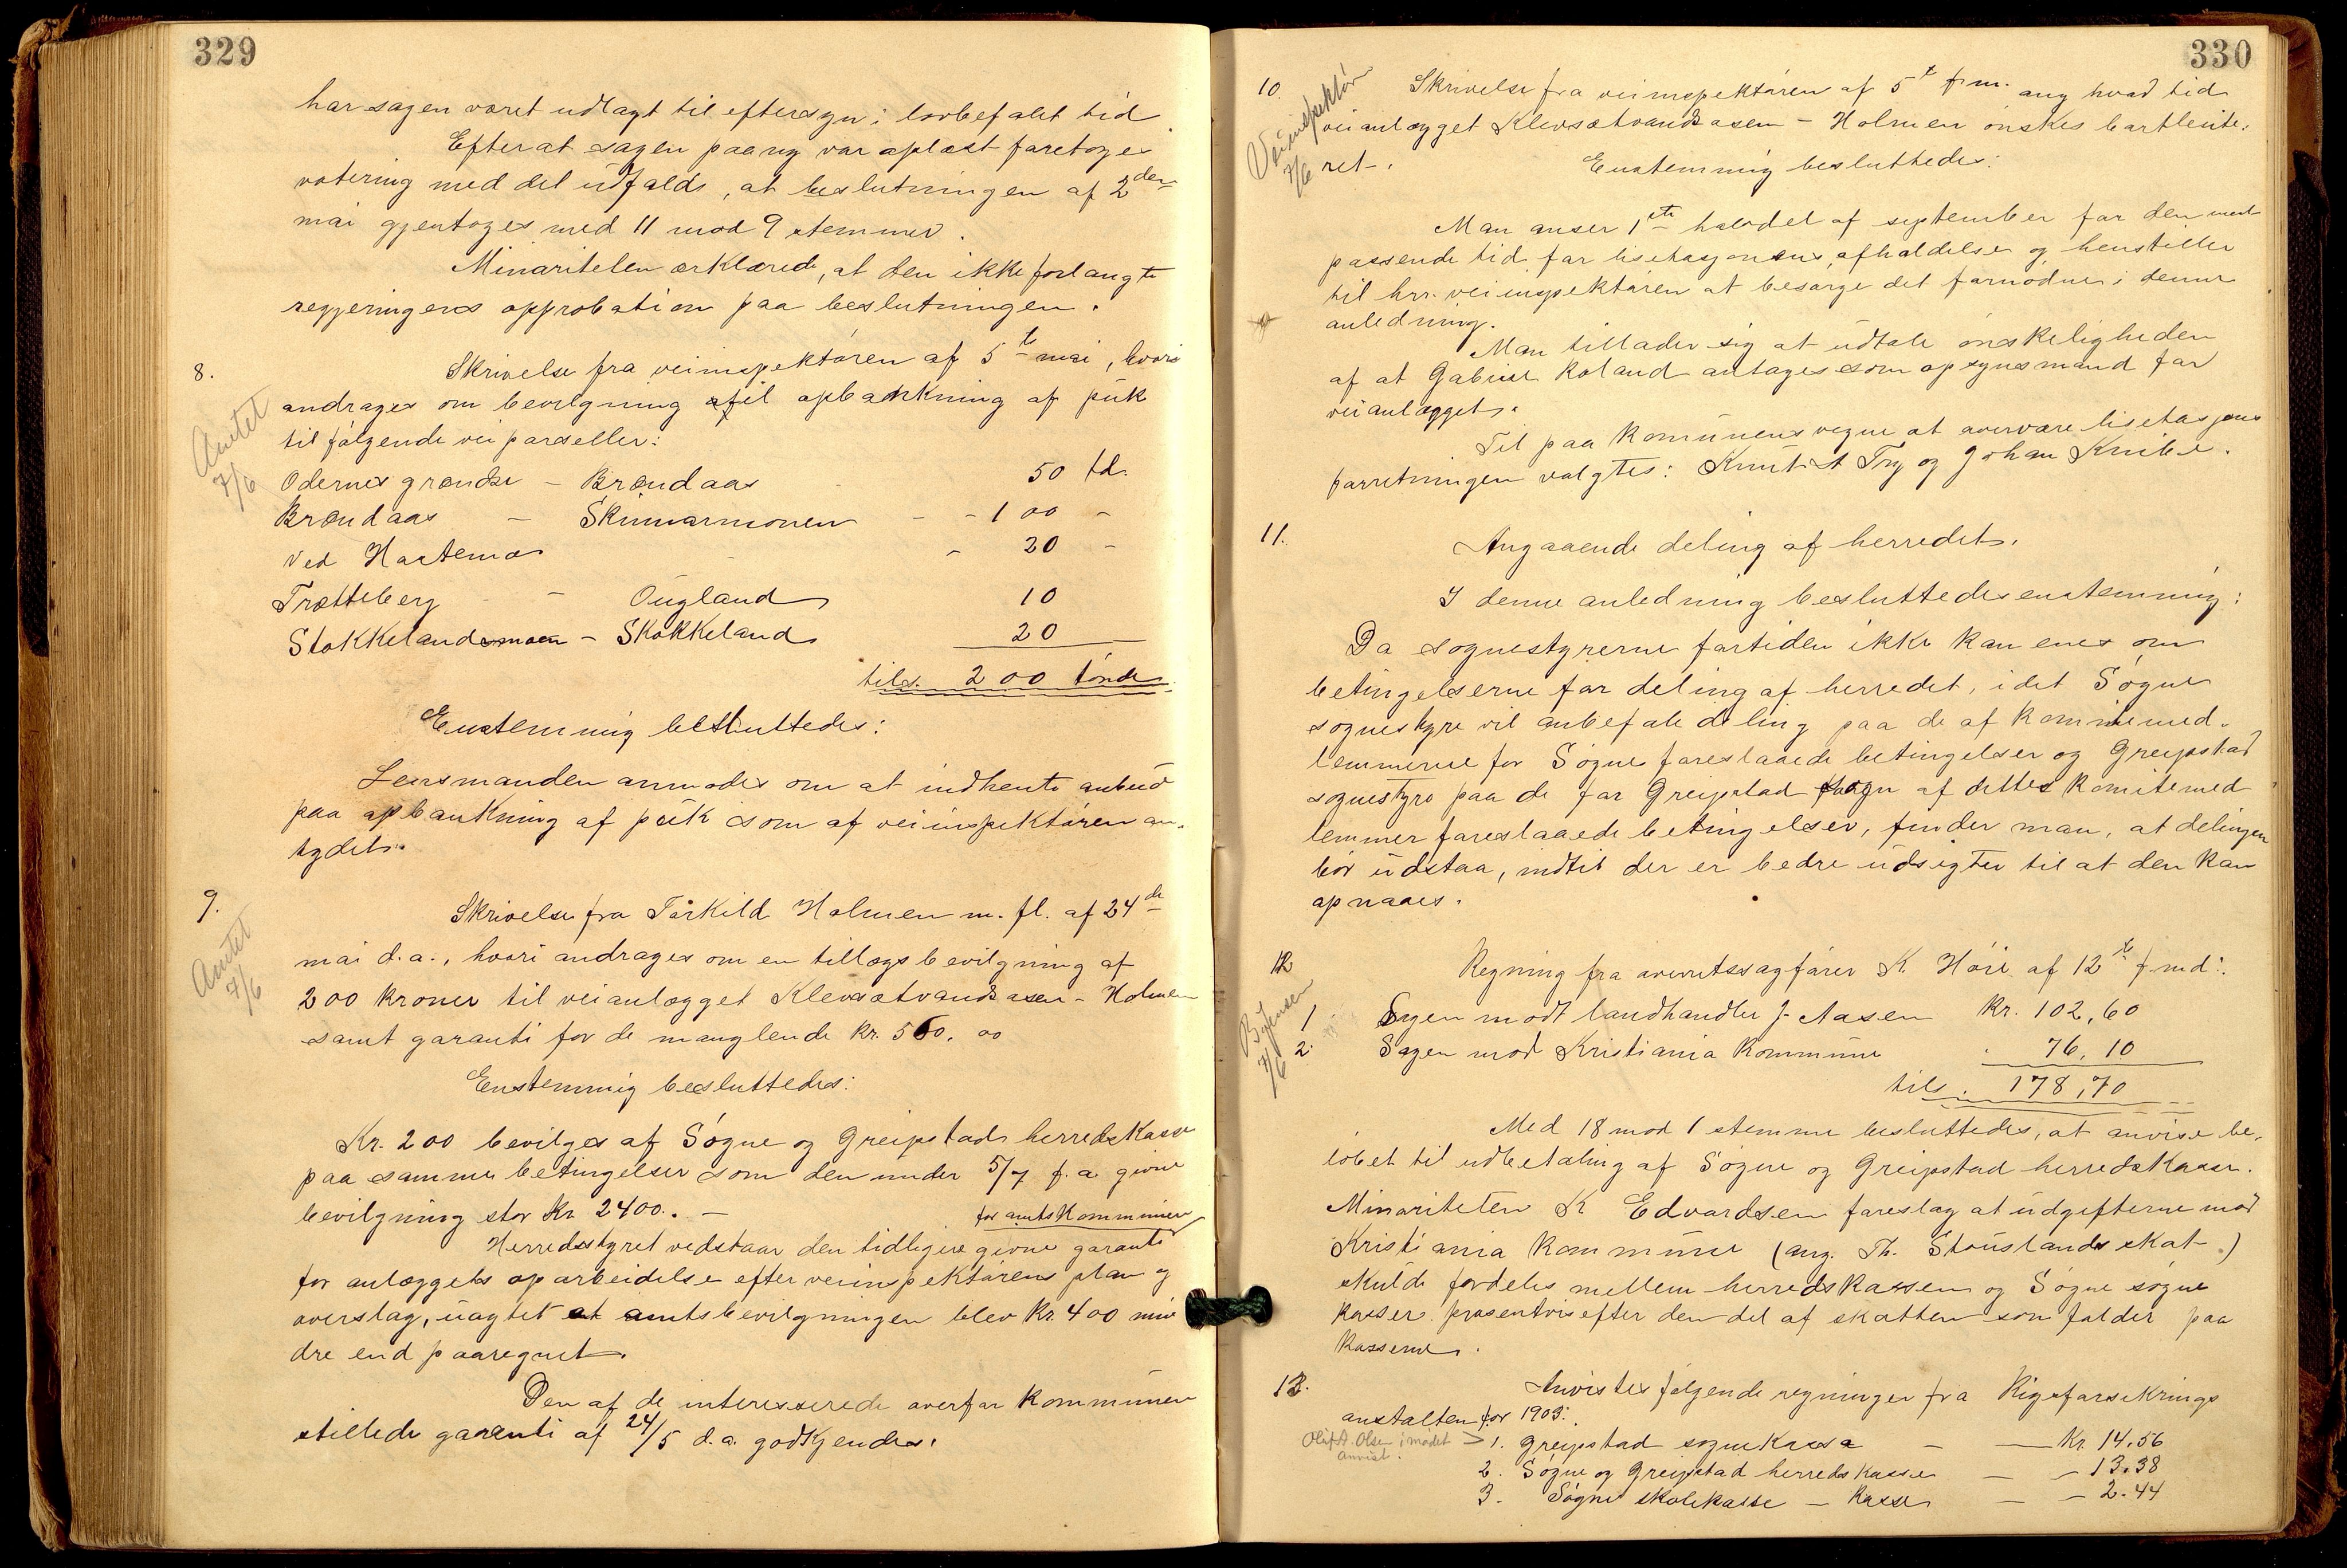 329
har sagen været udlagt til eftersyn i lovbefalet tid.
Efterat sagen paany var oplæst foretoges
votering med det udfald, at beslutningen af 2den
mai gjentoges med 11 mod 9 stemmer.
Minoriteten erklærede, at den ikke forlangte
regjeringens approbation paa beslutningen.
8. Skrivelse fra veiinspektøren af 5te mai, hvori
Amtet 7/6
andrages om bevilgning til opbankning af puk
til følgende veiparseller:
Odernes grændse - Brændaas 50 td.
Brændaas - Skinnarmonen - - 100 -
Ved Hortemo - 20 -
Trætteberg - Ougland 10
Stokkelandsmoen - Stokkeland 20
tils. 200 tønder
Enstemmig besluttedes:
Lensmanden anmodes om at indhente anbud
paa opbankning af puk som af veiinspektøren an-
tydet.
9. Skrivelse fra Tørkild Holmen m. fl. af 24de
Amtet 7/6
mai d.a., hvori andrages om en tillægsbevilgning af
200 kroner til veianlægget Klevsætvandsosen - Holmen
samt garanti for de manglende kr. 560.00
Enstemmig besluttedes:
Kr. 200 bevilges af Søgne og Greipstads herredskasse
paa samme betingelser som den under 5/7 f.a. givne
bevilgning stor kr. 2400. -
for amtskommunen
Herredsstyret vedstaar den tidligere givne garanti
for anlæggets oparbeidelse efter veiinspektørens plan og
overslag, uagtet at amtsbevilgningen blev kr. 400 min
dre end paaregnet.
Den af de interesserede overfor kommunen
stillede garanti af 24/5 d.a. godkjendes.
330
10. Skrivelse fra veiinspektøren af 5te f.m. ang hvad tid
Veiinspektør 7/6
veianlægget Klevsætvandsosen - Holmen ønskes bortlicite-
ret.
Enstemmig besluttedes:
Man anser 1ste halvdel af september for den mest
passende tid for lisetasjonens afholdelse og henstiller
til hrr. veiinspektøren at besørge det fornødne i denne
anledning.
Man tillader sig at udtale ønskeligheden
af at Gabriel Roland antages som opsynsmand for
veianlægget.
Til paa kommunens vegne at overvære lisetasjons
forretningen valgtes: Knut A Try og Johan Knibe.
11. Angaaende deling af herredet.
I denne anledning besluttedes enstemmig:
Da sognestyrerne fortiden ikke kan enes om
betingelserne for deling af herredet, idet Søgne
sognestyre vil anbefale deling paa de af komitemed-
lemmerne for Søgne foreslaaede betingelser og Greipstad
sognestyre paa de for Greipstad sogn af dettes komitemed
lemmer foreslaaede betingelser, finder man, at delingen
bør udstaa, indtil der er bedre udsigter til at den kan
opnaaes.
12 Regning fra overretssagfører K. Høie af 12te f. md:
7/6
1 Sagen mod landhandler J. Aasen kr. 102,60
2. Sagen mod Kristiania kommune 76,10
tils. 178,70
Med 18 mod 1 stemme besluttedes, at anvise be-
løbet til udbetaling af Søgne og Greipstad herredskasse.
Minoriteten K Edvardsen foreslog at udgifterne mod
Kristiania kommune (ang. Th. Stouslands skat)
skulde fordeles mellem herredskassen og Søgne sogne
kasser prosentvis efter den del af skatten som falder paa
kasserne.
13. Anvistes følgende regninger fra Rigsforsikrings
anstalten for 1903:
Olaf A. Olsen i mødet anvist.
> 1. Greipstad sognekasse - - Kr. 14.56
2. Søgne og Greipstad herredskasse - - 13.38
3. Søgne skolekasse - kasse - - 2.44